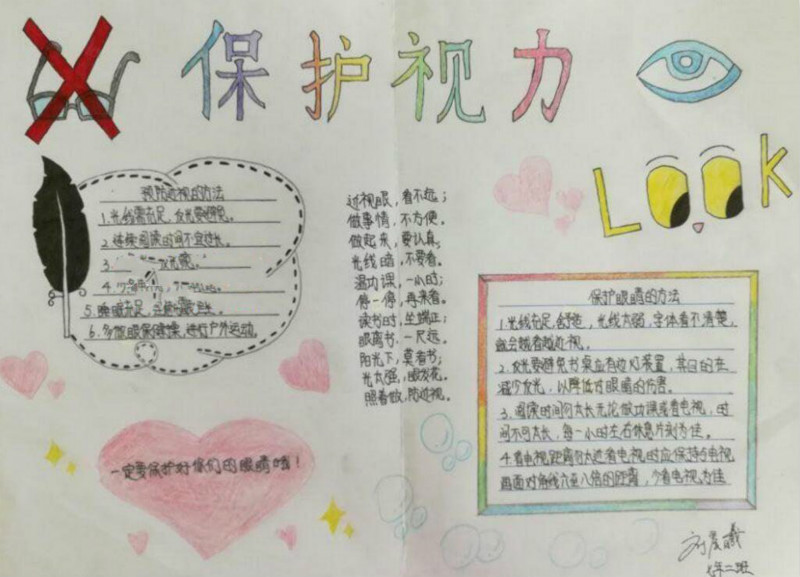 保护视力
LOOK
预防近视的方法
1.光线需充足,反光要避免。
2.连续阅读时间不宜过长。
3
4.
5.睡眠充足,
6.多做眼保健操,进行户外运动。
近视眼,看不远;
做事情,不方便。
做起来,要认真,
光线暗,不要看。
温功课,一小时;
停一停,再来看。
读书时,坐端正;
眼离书,一尺远。
阳光下,莫看书;
光太强,眼发花。
照着做,防近视。
保护眼睛的方法
1.光线充足,舒适,光线太弱,字体看不清楚,
就会越看越近视。
2.反光要避免书桌应有边灯装置,其目的在
减少反光,以降低对眼睛的伤害。
3.阅读时间勿太长无论做功课或看电视,时
间不可太长,每一小时左右休息片刻为佳。
4.看电视距离勿太近看电视时应保持与电视
画面对角线六至八倍的距离,
看电视为佳
一定要保护好你们的眼睛哦!
刘晨曦
年二班